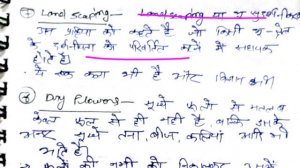 ① Landscaping - Landscaping या
उस प्रक्रिया को कहते हैं जो किसी भू-
को परिवर्तित करने में सहायक
होती है।
• ये एक कला भी है और विज्ञान भी।
② Dry Flowers - सूखे फूलों से मतलब
केवल फूल से ही नहीं है, बल्कि इसके
अन्दर सूखे तना, बीज, कलियां आदि भी
आते हैं।
• फूलों की नमी को